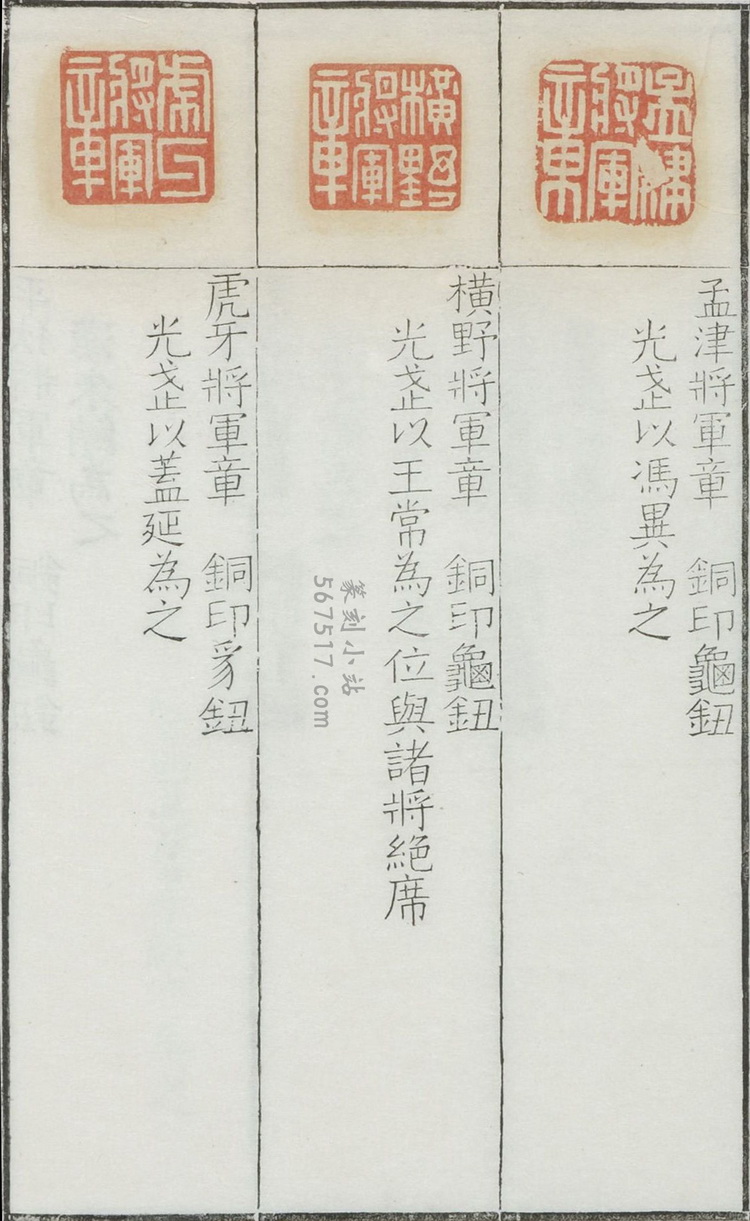 孟津將軍章
孟津將軍章　銅印龜鈕
光武以馮異為之
橫野將軍章
橫野將軍章　銅印龜鈕
光武以王常為之位與諸將絕席
虎牙將軍章
虎牙將軍章　銅印豸鈕
光武以蓋延為之
篆刻小站
567517.com